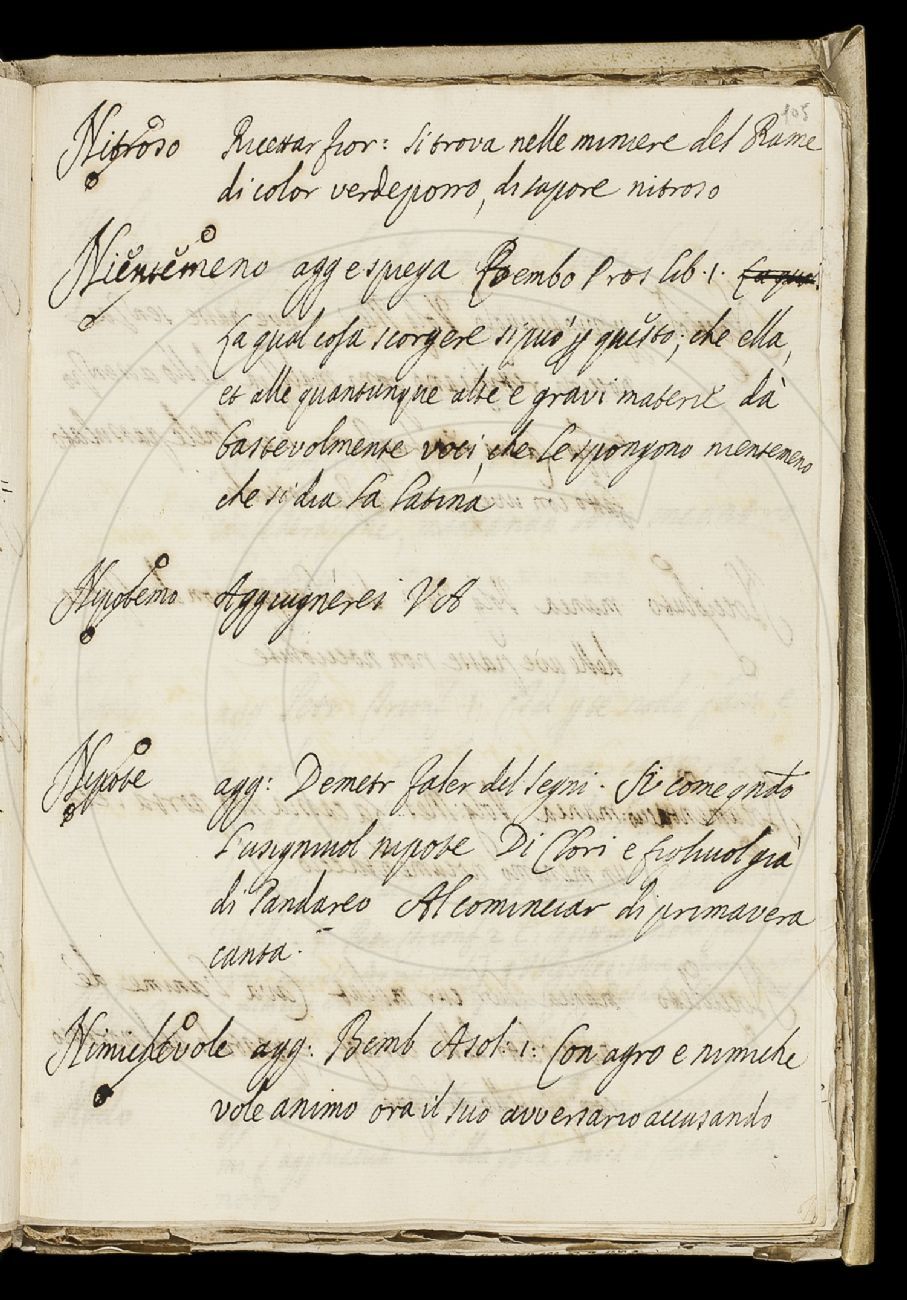 105
Nitroso Ricettar fior: si trova nelle miniere del Rame
di color verdeporro, di sapore nitroso
Nientemeno agg e spiega Bembo Pros lib. 1. La qual
La qual cosa scorgere si può p questo; che ella,
et alle quantunque alte e gravi materie dà
bastevolmente voci, che le spongono nientemeno
che si dia la latina
Nipotemo Aggiugneresi VA
Nipote agg: Demetr faler del Segni. Si come qndo
l'usigniuol nipote Di Clori e figliuol già
di Pandareo Al cominciar di primavera
canta.
Nimichevole agg: Bemb Asol: 1: Con agro e nimiche
vole animo ora il suo avversario accusando